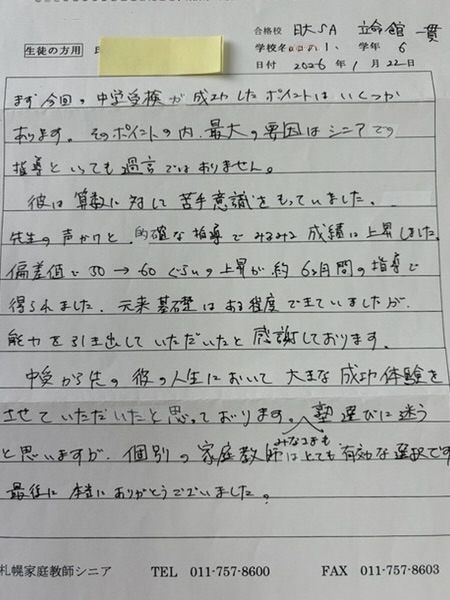 合格校 日大SA 立命館 一貫
生徒の方用 学校名 1. 学年 6
日付 2026年1月22日
まず今回の中学受検が成功したポイントはいくつか
あります。そのポイントの内、最大の要因はシニアでの
指導といっても過言ではありません。
彼は算数に対して苦手意識をもっていました。
先生の声かけと、的確な指導でみるみる成績は上昇しました。
偏差値で50→60ぐらいの上昇が約6ヶ月間の指導で
得られました。元来基礎はある程度できていましたが、
能力を引き出していただいたと感謝しております。
中受から先の彼の人生において大きな成功体験を
させていただいたと思っております。塾選びに迷う
みなさまも
と思いますが、個別の家庭教師はとても有効な選択です
最後に本当にありがとうございました。
札幌家庭教師シニア TEL 011-757-8600 FAX 011-757-8603